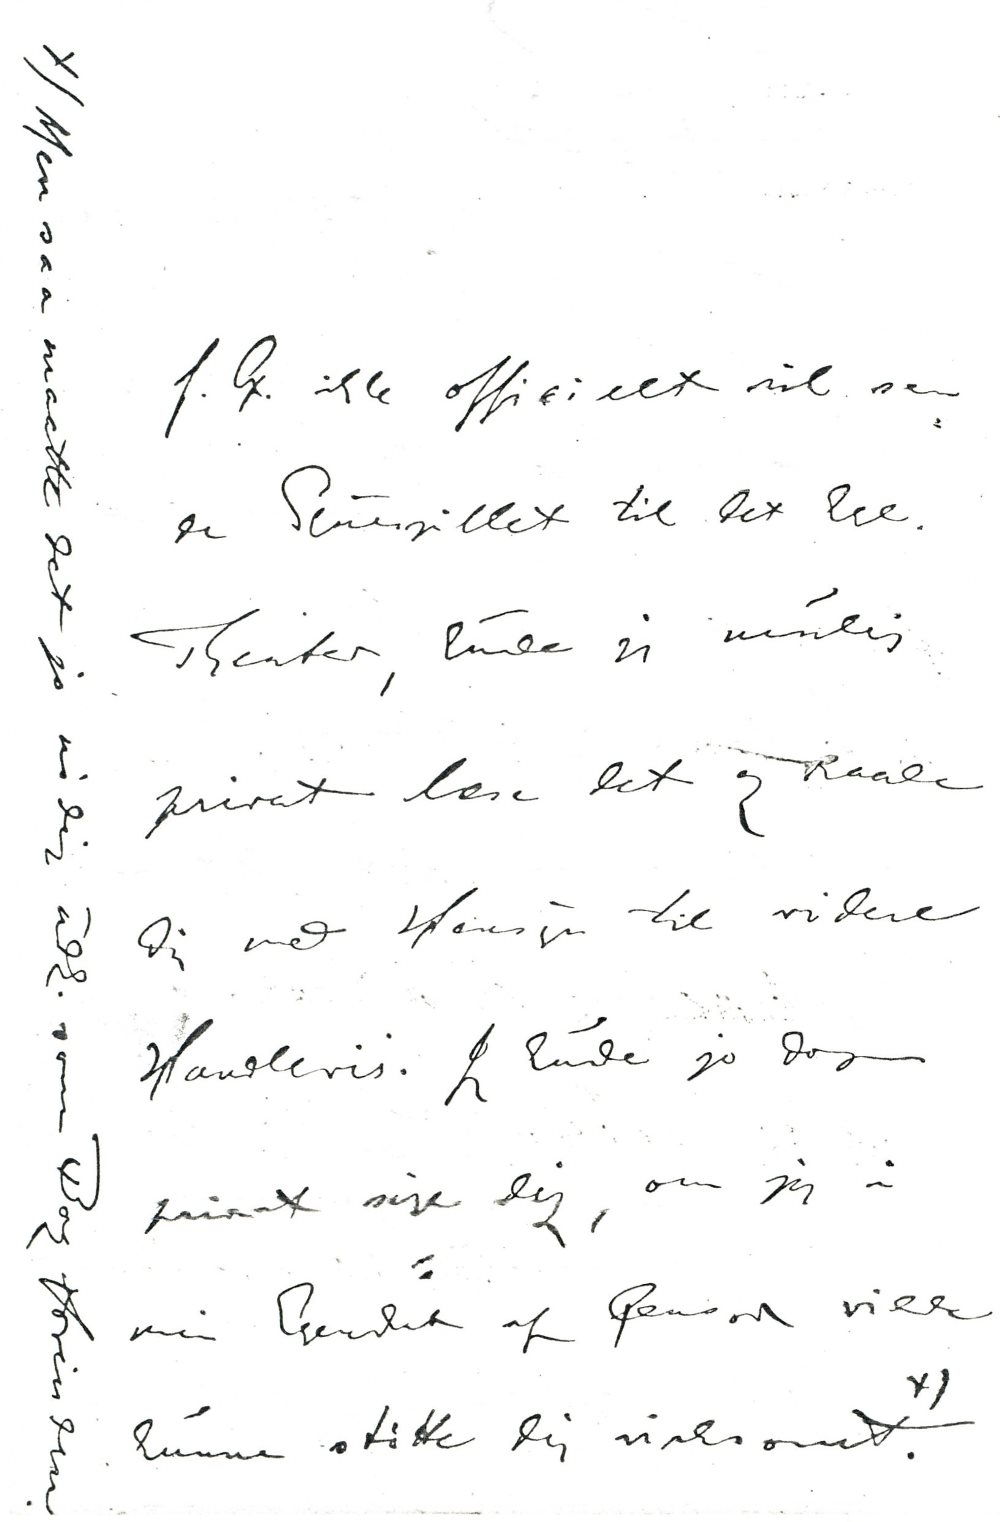 f. Ex. ikke officielt vil sen-
de Skuespillet til det kgl.
Theater, kunde jeg muelig
privat læse det og raade
dig med Hensyn til videre
Handlevis. Jeg kunde jo dog
privat sige dig, om jeg i
min Egenskab af Censor vilde
kunne støtte dig virksomt. x)
x/ Men saa maatte det jo nødig udg. som Bog forinden.